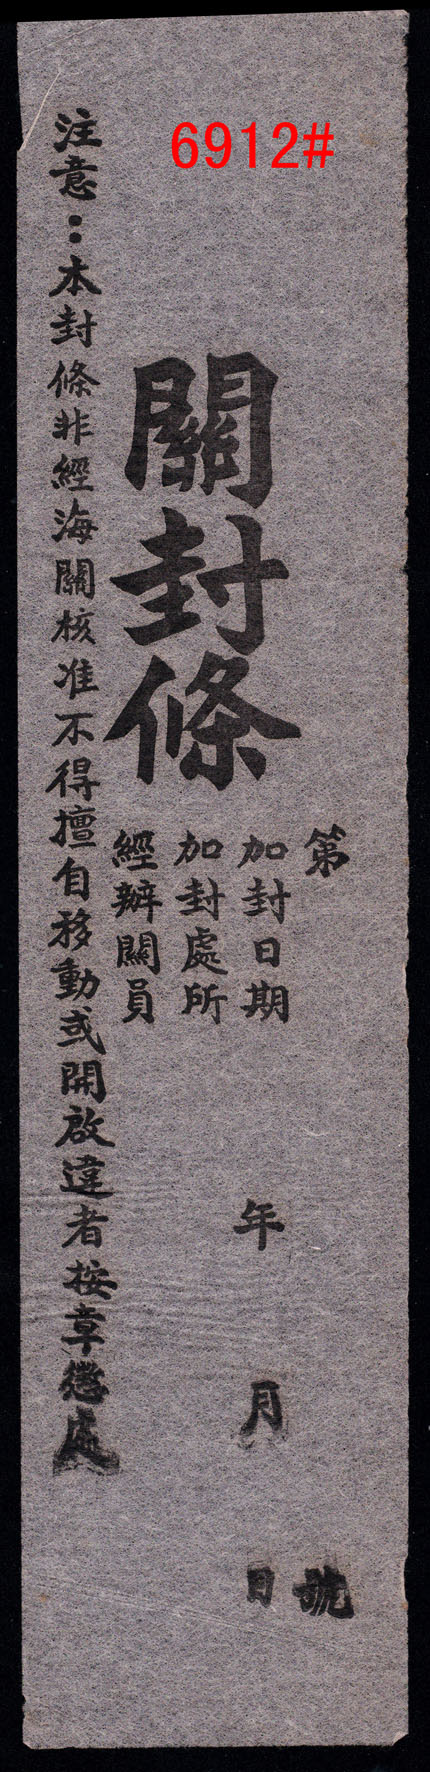 6912#
關封條
第 號
加封日期 年 月 日
加封處所
經辦關員
注意：本封條非經海關核准不得擅自移動或開啟違者按章懲處